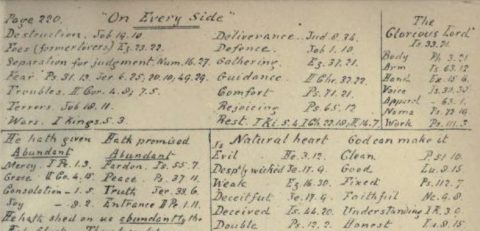 Page 220. "On Every Side"
Destruction. Job 19.10.
Foes (former lovers) Ez. 23.22.
Separation for judgment. Num. 16.27.
Fear Ps. 31.13. Jer. 6.25, 20.10, 49.29.
Troubles. II Cor. 4.8, 7.5.
Terrors. Job 18.11.
Wars. I Kings. 5.3.
Deliverance. Jud. 8.34.
Defence. Job 1.10.
Gathering Ez. 37.21.
Guidance II Chr. 32.22.
Comfort Ps. 71.21.
Rejoicing Ps. 65.12.
Rest. I Ki. 5.4, I Ch. 22.18, II 14.7.
The
Glorious Lord"
Is 33.21.
Body Ph. 3.21
Arm Is. 63.12
Hand Ex. 15.6
Voice Is. 30.30
Apparel - 63.1.
Name Is. 63.14
Work Ps. 111.3
He hath given
Abundant
Mercy I Pe. 1.3.
Grace II Co. 4.15.
Consolation - 1.5.
Joy - 8.2.
Hath promised
Abundant
Pardon Is. 55.7.
Peace Ps. 37.11
Truth Jer. 33.6.
Entrance II Pe 1.11.
He hath shed on us abundantly the
Is Natural heart God can make it
Evil He. 3.12. Clean Ps 51 10.
Desp'ly wicked Je. 17.9. Good Lu. 8.15
Weak Ez. 16.30. Fixed Ps. 112.7
Deceitful Je. 17.9. Faithful Ne. 9.8.
Deceived Is. 44.20. Understanding I K. 3.9.
Double Ps. 12.2. Honest Lu. 8.15